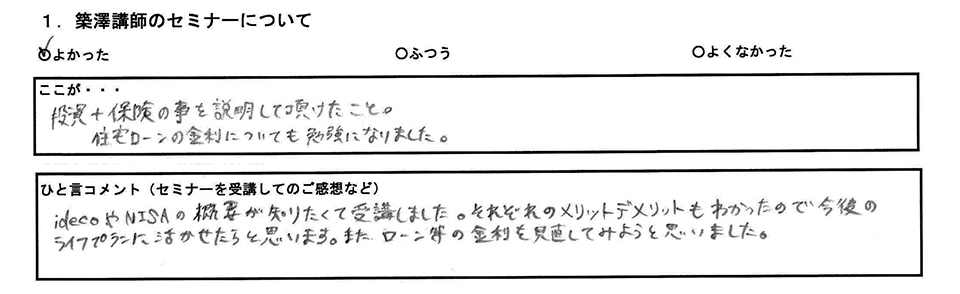 1．築澤講師のセミナーについて
○よかった ○ふつう ○よくなかった
ここが・・・
投資＋保険の事を説明して頂けたこと。
住宅ローンの金利についても勉強になりました。
ひと言コメント（セミナーを受講してのご感想など）
idecoやNISAの概要が知りたくて受講しました。それぞれのメリットデメリットもわかったので今後の
ライフプランに活かせたらと思います。また ローン等の金利も見直してみようと思いました。